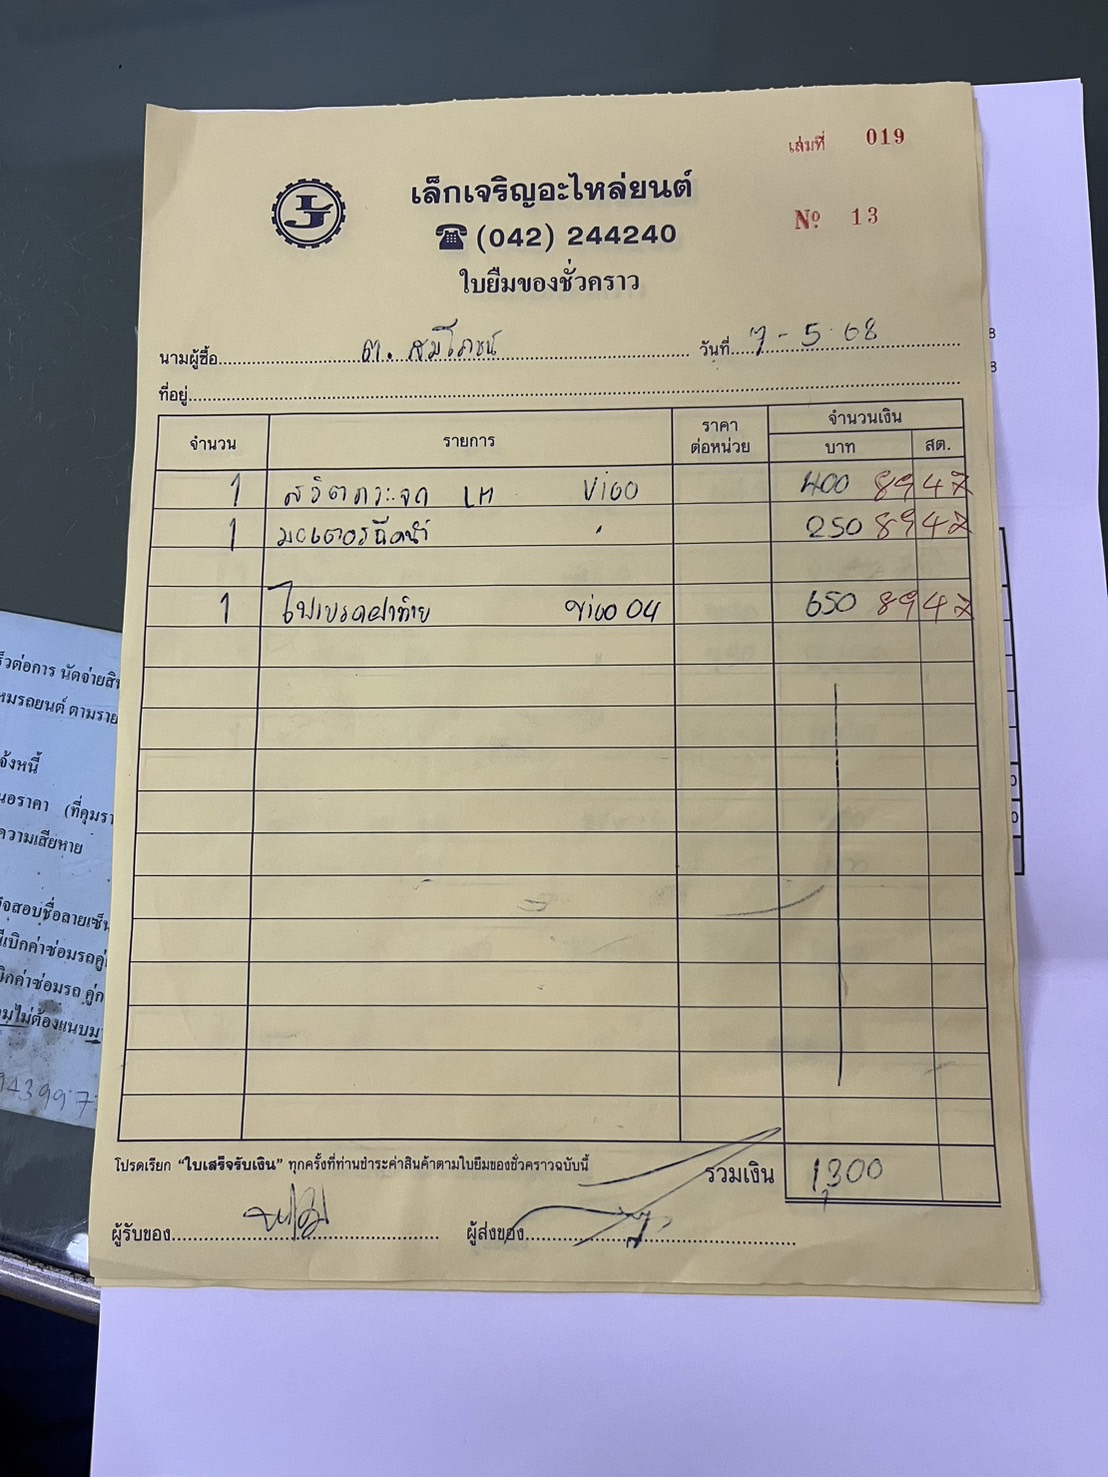 เล่มที่ 019
LJ
เล็กเจริญอะไหล่ยนต์
No. 13
☎ (042) 244240
ใบยืมของชั่วคราว
นามผู้ซื้อ ต. สมโภชน์ วันที่ 7-5-68
ที่อยู่
จำนวน รายการ ราคาต่อหน่วย จำนวนเงิน
บาท สต.
1 สวิตกระจก LH VIGO 400 8947
1 มอเตอร์ฉีดน้ำ " 250 8947
1 ไฟเบรคฝาท้าย VIGO 04 650 8947
โปรดเรียก “ใบเสร็จรับเงิน” ทุกครั้งที่ท่านชำระค่าสินค้าตามใบยืมของชั่วคราวฉบับนี้
รวมเงิน 1,300
ผู้รับของ ผู้ส่งของ
ร็วต่อการ นัดจ่ายสิน
หมรถยนต์ ตามราย
จ้งหนี้
นอราคา (ที่คุมรา
ความเสียหาย
จสอบชื่อลายเซ็น
เบิกค่าซ่อมรถคู่
บิกค่าซ่อมรถ คู่ก
มไม่ต้องแนบม